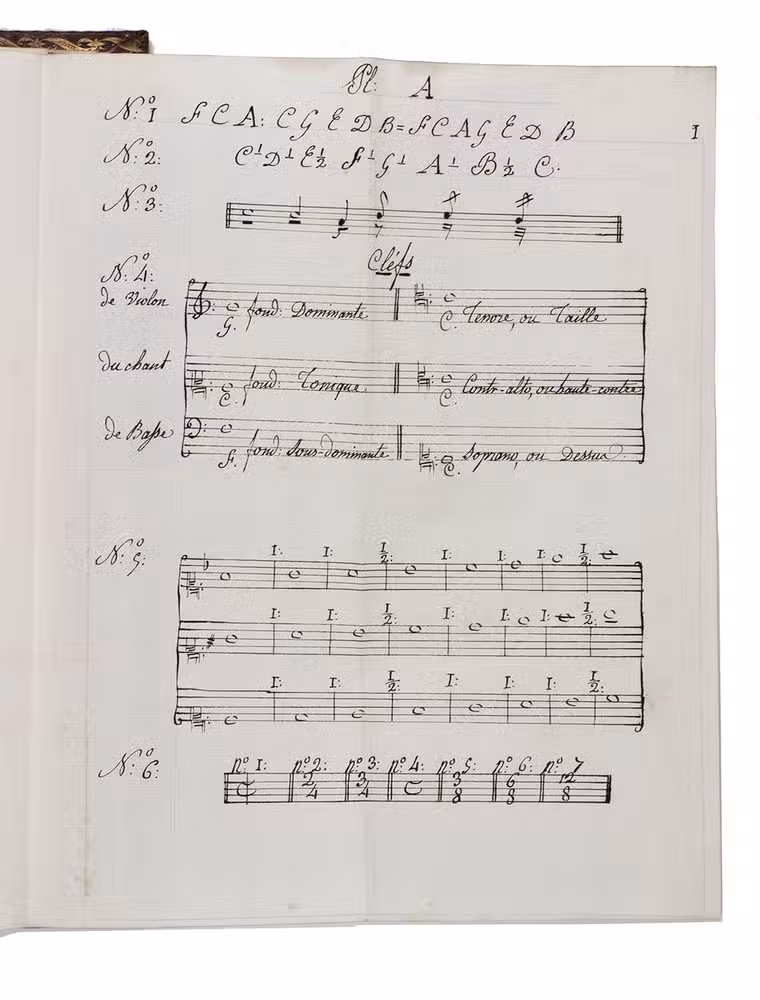 Pl: A
N:o 1 F C A: C G E D B = F C A G E D B 1
N:o 2: C 1 D 1 E 1/2 F 1 G 1 A 1 B 1/2 C.
N:o 3:
Cléfs
N:o 4:
de Violon G. fond: Dominante C. Tenore, ou Taille
du chant C. fond: Tonique C. Contr-alto, ou haute-contre
de Basse F. fond: Sous-dominante C. Soprano, ou Dessus.
N:o 5:
1: 1: 1/2: 1: 1: 1: 1/2:
1: 1: 1/2: 1: 1: 1: 1/2:
1: 1: 1/2: 1: 1: 1: 1/2:
N:o 6: n:o 1: n:o 2: n:o 3: n:o 4: n:o 5: n:o 6: n:o 7
C 2/4 3/4 C 3/8 6/8 12/8